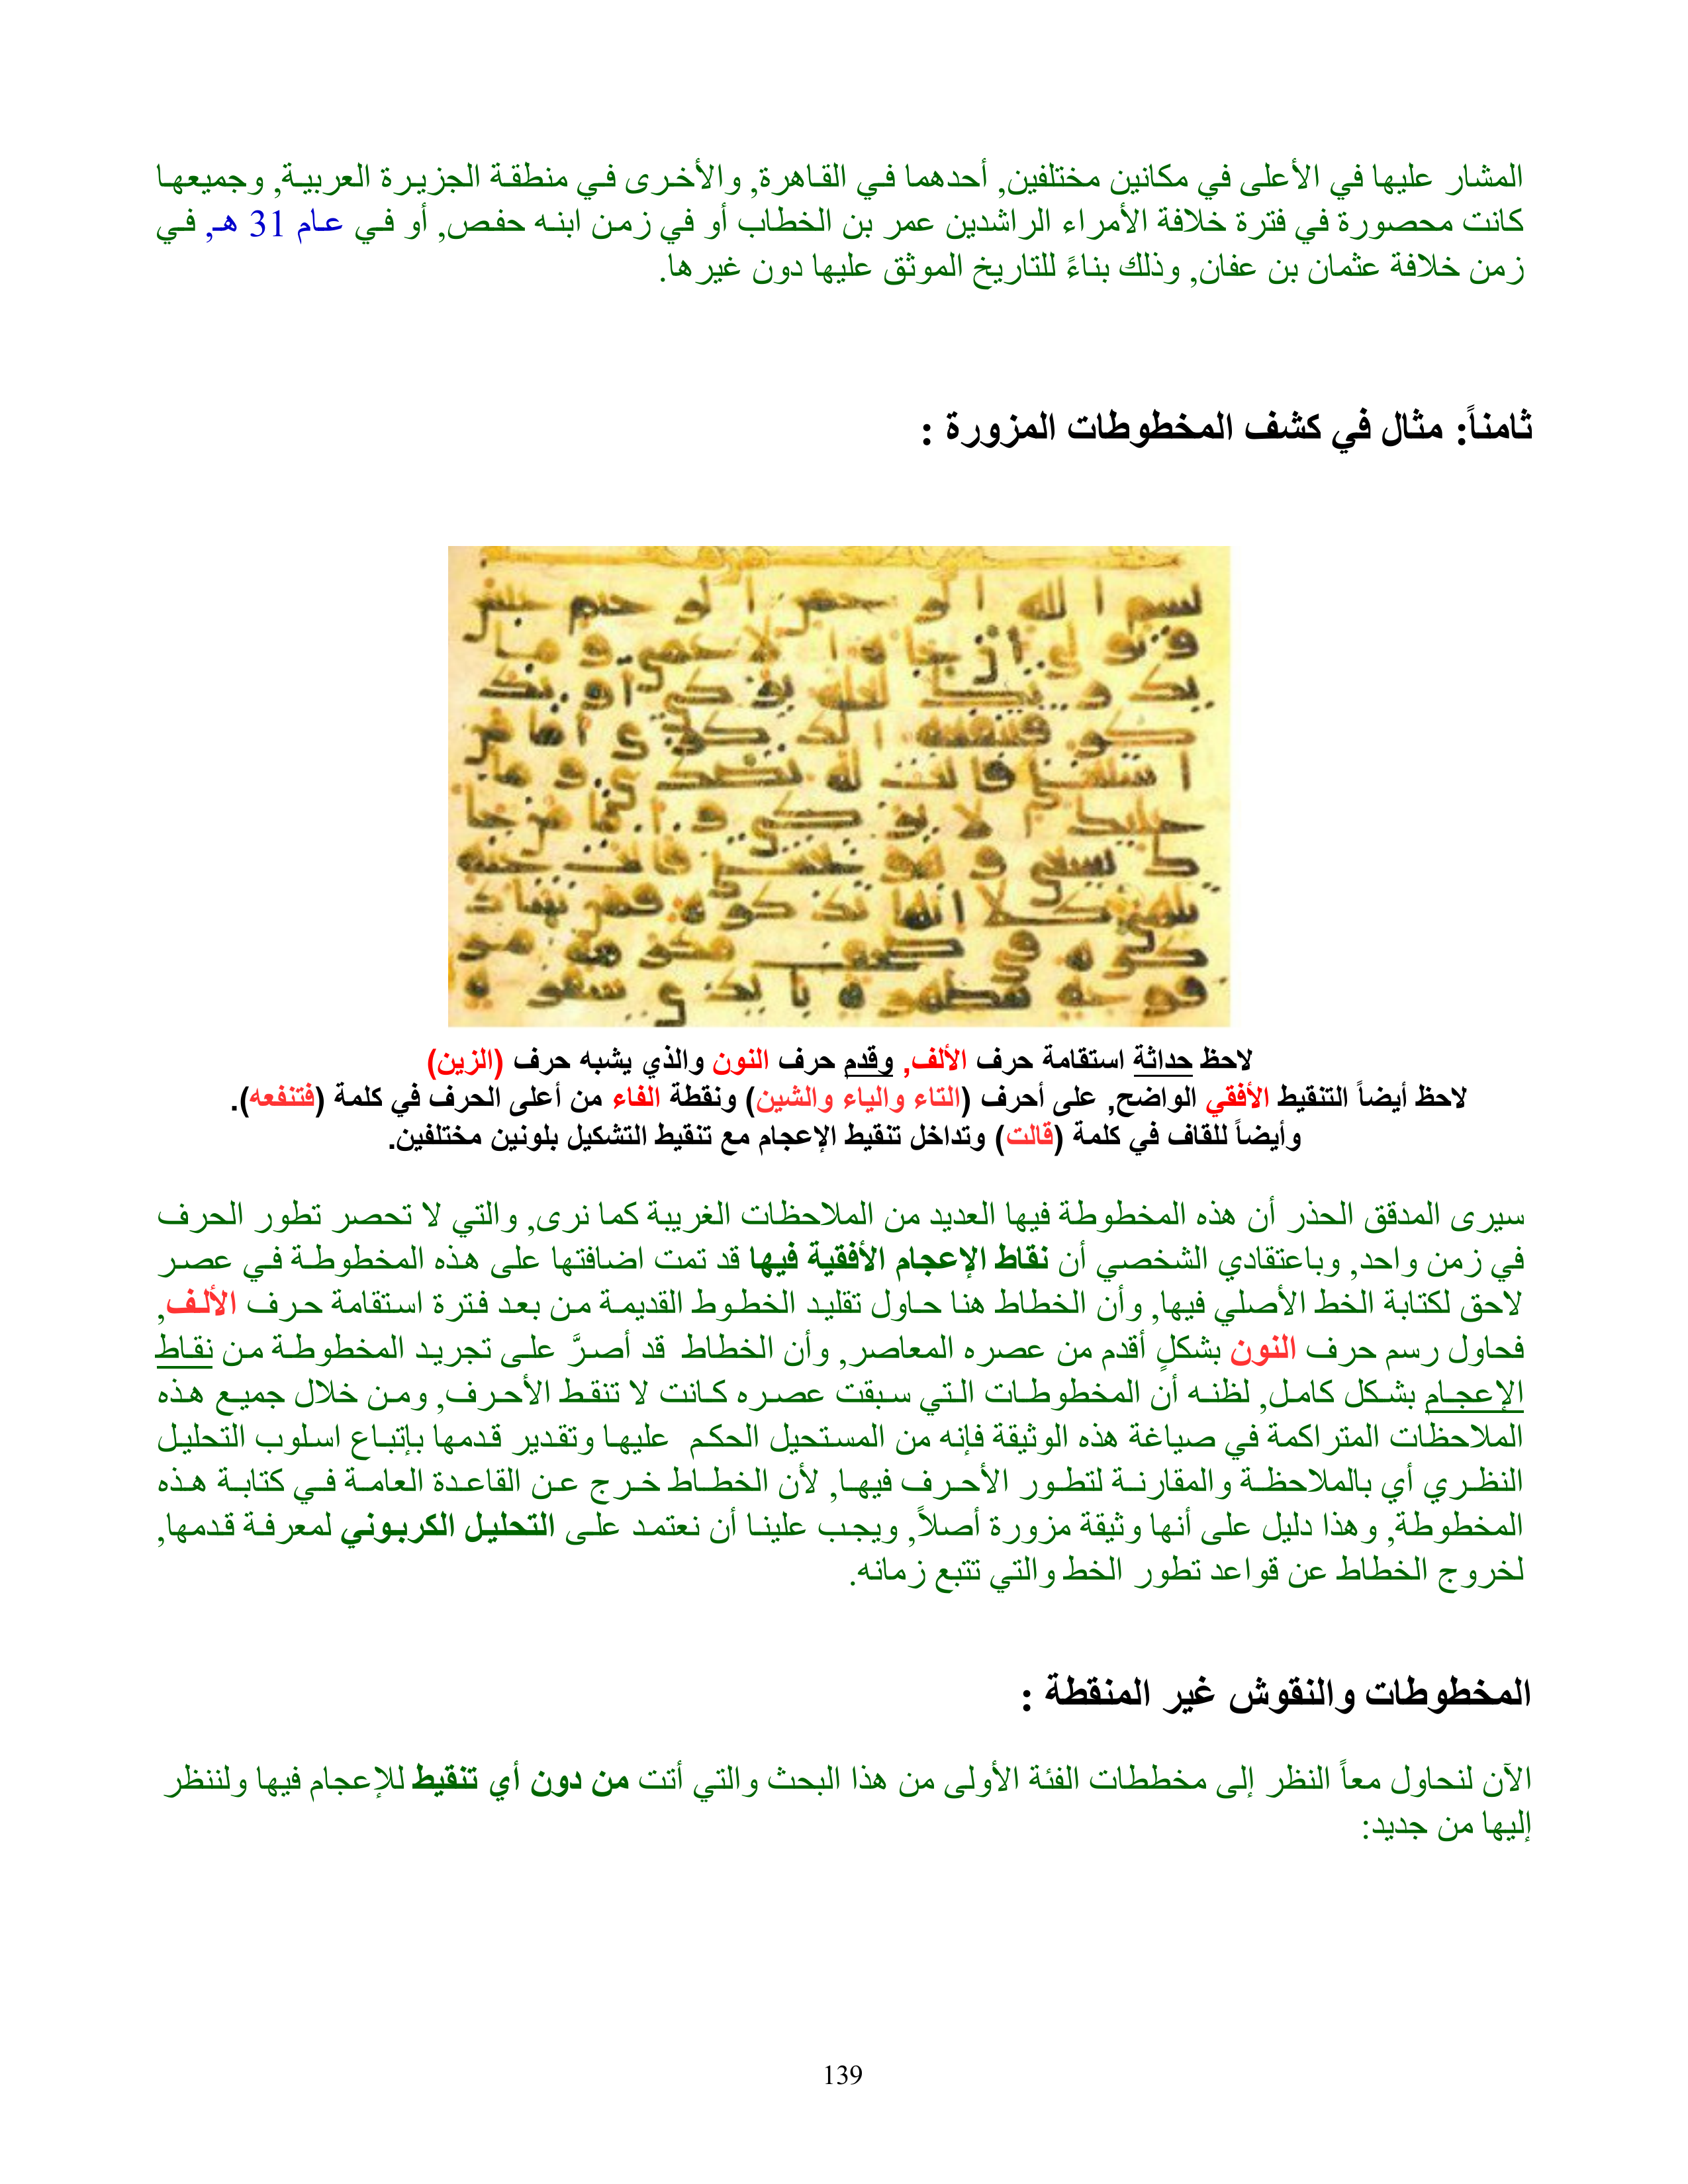 المشار عليها في الأعلى في مكانين مختلفين, أحدهما في القاهرة, والأخرى في منطقة الجزيرة العربية, وجميعها
كانت محصورة في فترة خلافة الأمراء الراشدين عمر بن الخطاب أو في زمن ابنه حفص, أو في عام 31 هـ, في
زمن خلافة عثمان بن عفان, وذلك بناءً للتاريخ الموثق عليها دون غيرها.
ثامناً: مثال في كشف المخطوطات المزورة :
لاحظ حداثة استقامة حرف الألف, وقدم حرف النون والذي يشبه حرف (الزين)
لاحظ أيضاً التنقيط الأفقي الواضح, على أحرف (التاء والياء والشين) ونقطة الفاء من أعلى الحرف في كلمة (فتنفعه).
وأيضاً للقاف في كلمة (قالت) وتداخل تنقيط الإعجام مع تنقيط التشكيل بلونين مختلفين.
سيرى المدقق الحذر أن هذه المخطوطة فيها العديد من الملاحظات الغريبة كما نرى, والتي لا تحصر تطور الحرف
في زمن واحد, وباعتقادي الشخصي أن نقاط الإعجام الأفقية فيها قد تمت اضافتها على هذه المخطوطة في عصر
لاحق لكتابة الخط الأصلي فيها, وأن الخطاط هنا حاول تقليد الخطوط القديمة من بعد فترة استقامة حرف الألف,
فحاول رسم حرف النون بشكلٍ أقدم من عصره المعاصر, وأن الخطاط قد أصرَّ على تجريد المخطوطة من نقاط
الإعجام بشكل كامل, لظنه أن المخطوطات التي سبقت عصره كانت لا تنقط الأحرف, ومن خلال جميع هذه
الملاحظات المتراكمة في صياغة هذه الوثيقة فإنه من المستحيل الحكم عليها وتقدير قدمها بإتباع اسلوب التحليل
النظري أي بالملاحظة والمقارنة لتطور الأحرف فيها, لأن الخطاط خرج عن القاعدة العامة في كتابة هذه
المخطوطة, وهذا دليل على أنها وثيقة مزورة أصلاً, ويجب علينا أن نعتمد على التحليل الكربوني لمعرفة قدمها,
لخروج الخطاط عن قواعد تطور الخط والتي تتبع زمانه.
المخطوطات والنقوش غير المنقطة :
الآن لنحاول معاً النظر إلى مخططات الفئة الأولى من هذا البحث والتي أتت من دون أي تنقيط للإعجام فيها ولننظر
إليها من جديد:
139